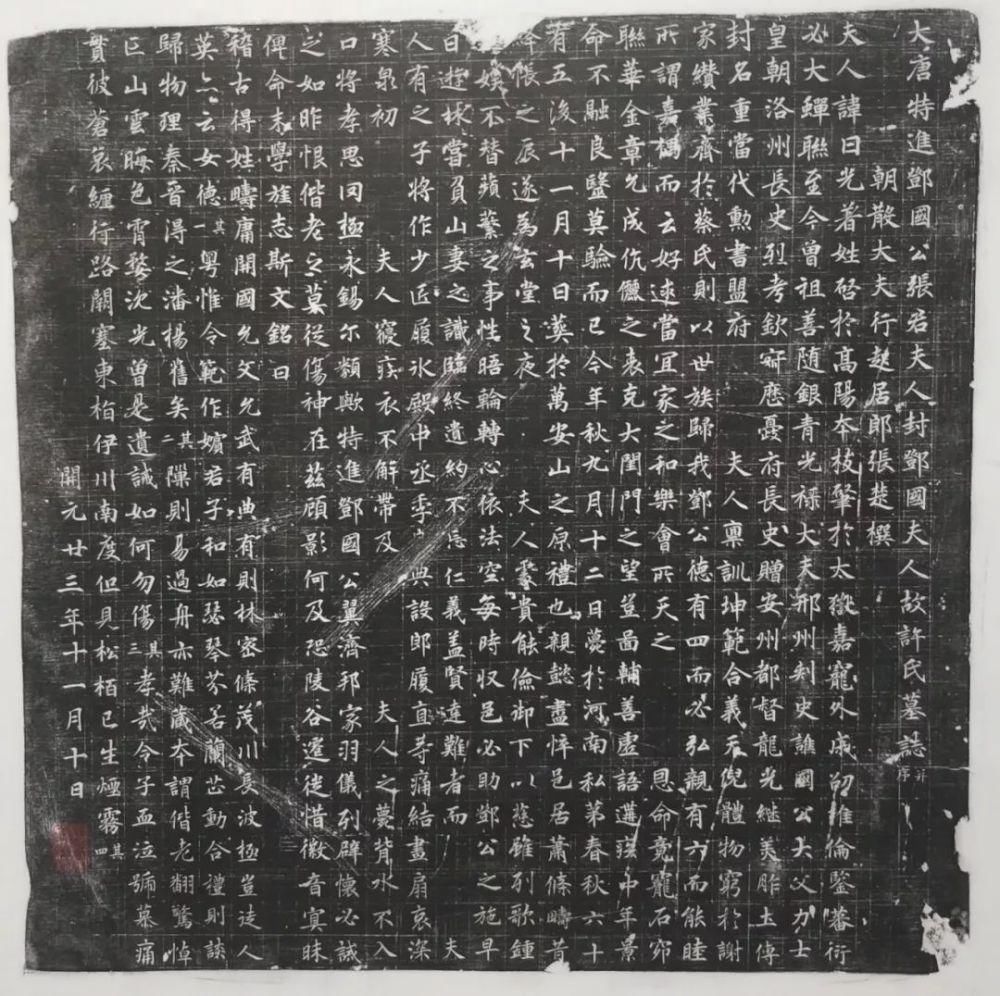 大唐特進鄧國公張君夫人封鄧國夫人故許氏墓誌并序
朝散大夫行起居郎張楚撰
夫人諱日光著姓啓於高陽本枝肇於太嶽嘉寵外戚邵雍倫鑒蕃衍
必大蟬聯至今曾祖善隨銀青光禄大夫邢州刺史譙國公大父力士
皇朝洛州長史烈考欽寂應憂府長史贈安州都督龍光繼美胙土傳
封名重當代勲書盟府 夫人禀訓坤範合義天倪體物窮於謝
家纘業齊於蔡氏則以世族歸我鄧公德有四而必弘親有六而能睦
所謂嘉耦而云好逑當宜家之和樂會所天之 恩命竟寵石窌
聯華金章允成伉儷之表克大閨門之望豈啚輔善虚語遘 中年景
命不融良毉莫驗而已今年秋九月十二日薨於河南私第春秋六十
有五後十一月十日葬於萬安山之原禮也親懿盡悴邑居蕭條疇昔
帳之辰遂為玄堂之夜 夫人處貴能儉御下以慈雖列歌鍾
娱不替蘋蘩之事性晤輪轉心依法空每時收邑必助鄧公之施早
日遊牀當負山妻之識臨終遺約不忘仁義盖賢達難者而 夫
人有之子將作少匠履氷殿中丞季 典設郎履直等痛結畫扇哀深
寒泉初 夫人寢疾衣不解帶及 夫人之薨背水不入
口將孝思罔極永錫尔類歟特進鄧國公翼濟邦家羽儀列辟懷必誠
之如昨恨偕老之莫從傷神在兹顧影何及恐陵谷遷徙惜徽音寘昧
俾命末學旌志斯文銘曰
稽古得姓疇庸開國允文允武有典有則林密條茂川長波極豈徒人
英亦云女德其一粤惟令範作嬪君子和如瑟琴芬若蘭芷動合禮則談
歸物理秦晉得之潘楊舊矣其二隟則易過舟亦難藏本謂偕老翻驚悼
亡山雲晦色霄婺沈光曾是遺誡如何勿傷其三孝哉令子血泣號慕痛
貫彼蒼哀纏行路闕塞東栢伊川南度但見松栢已生煙霧其四
開元廿三年十一月十日